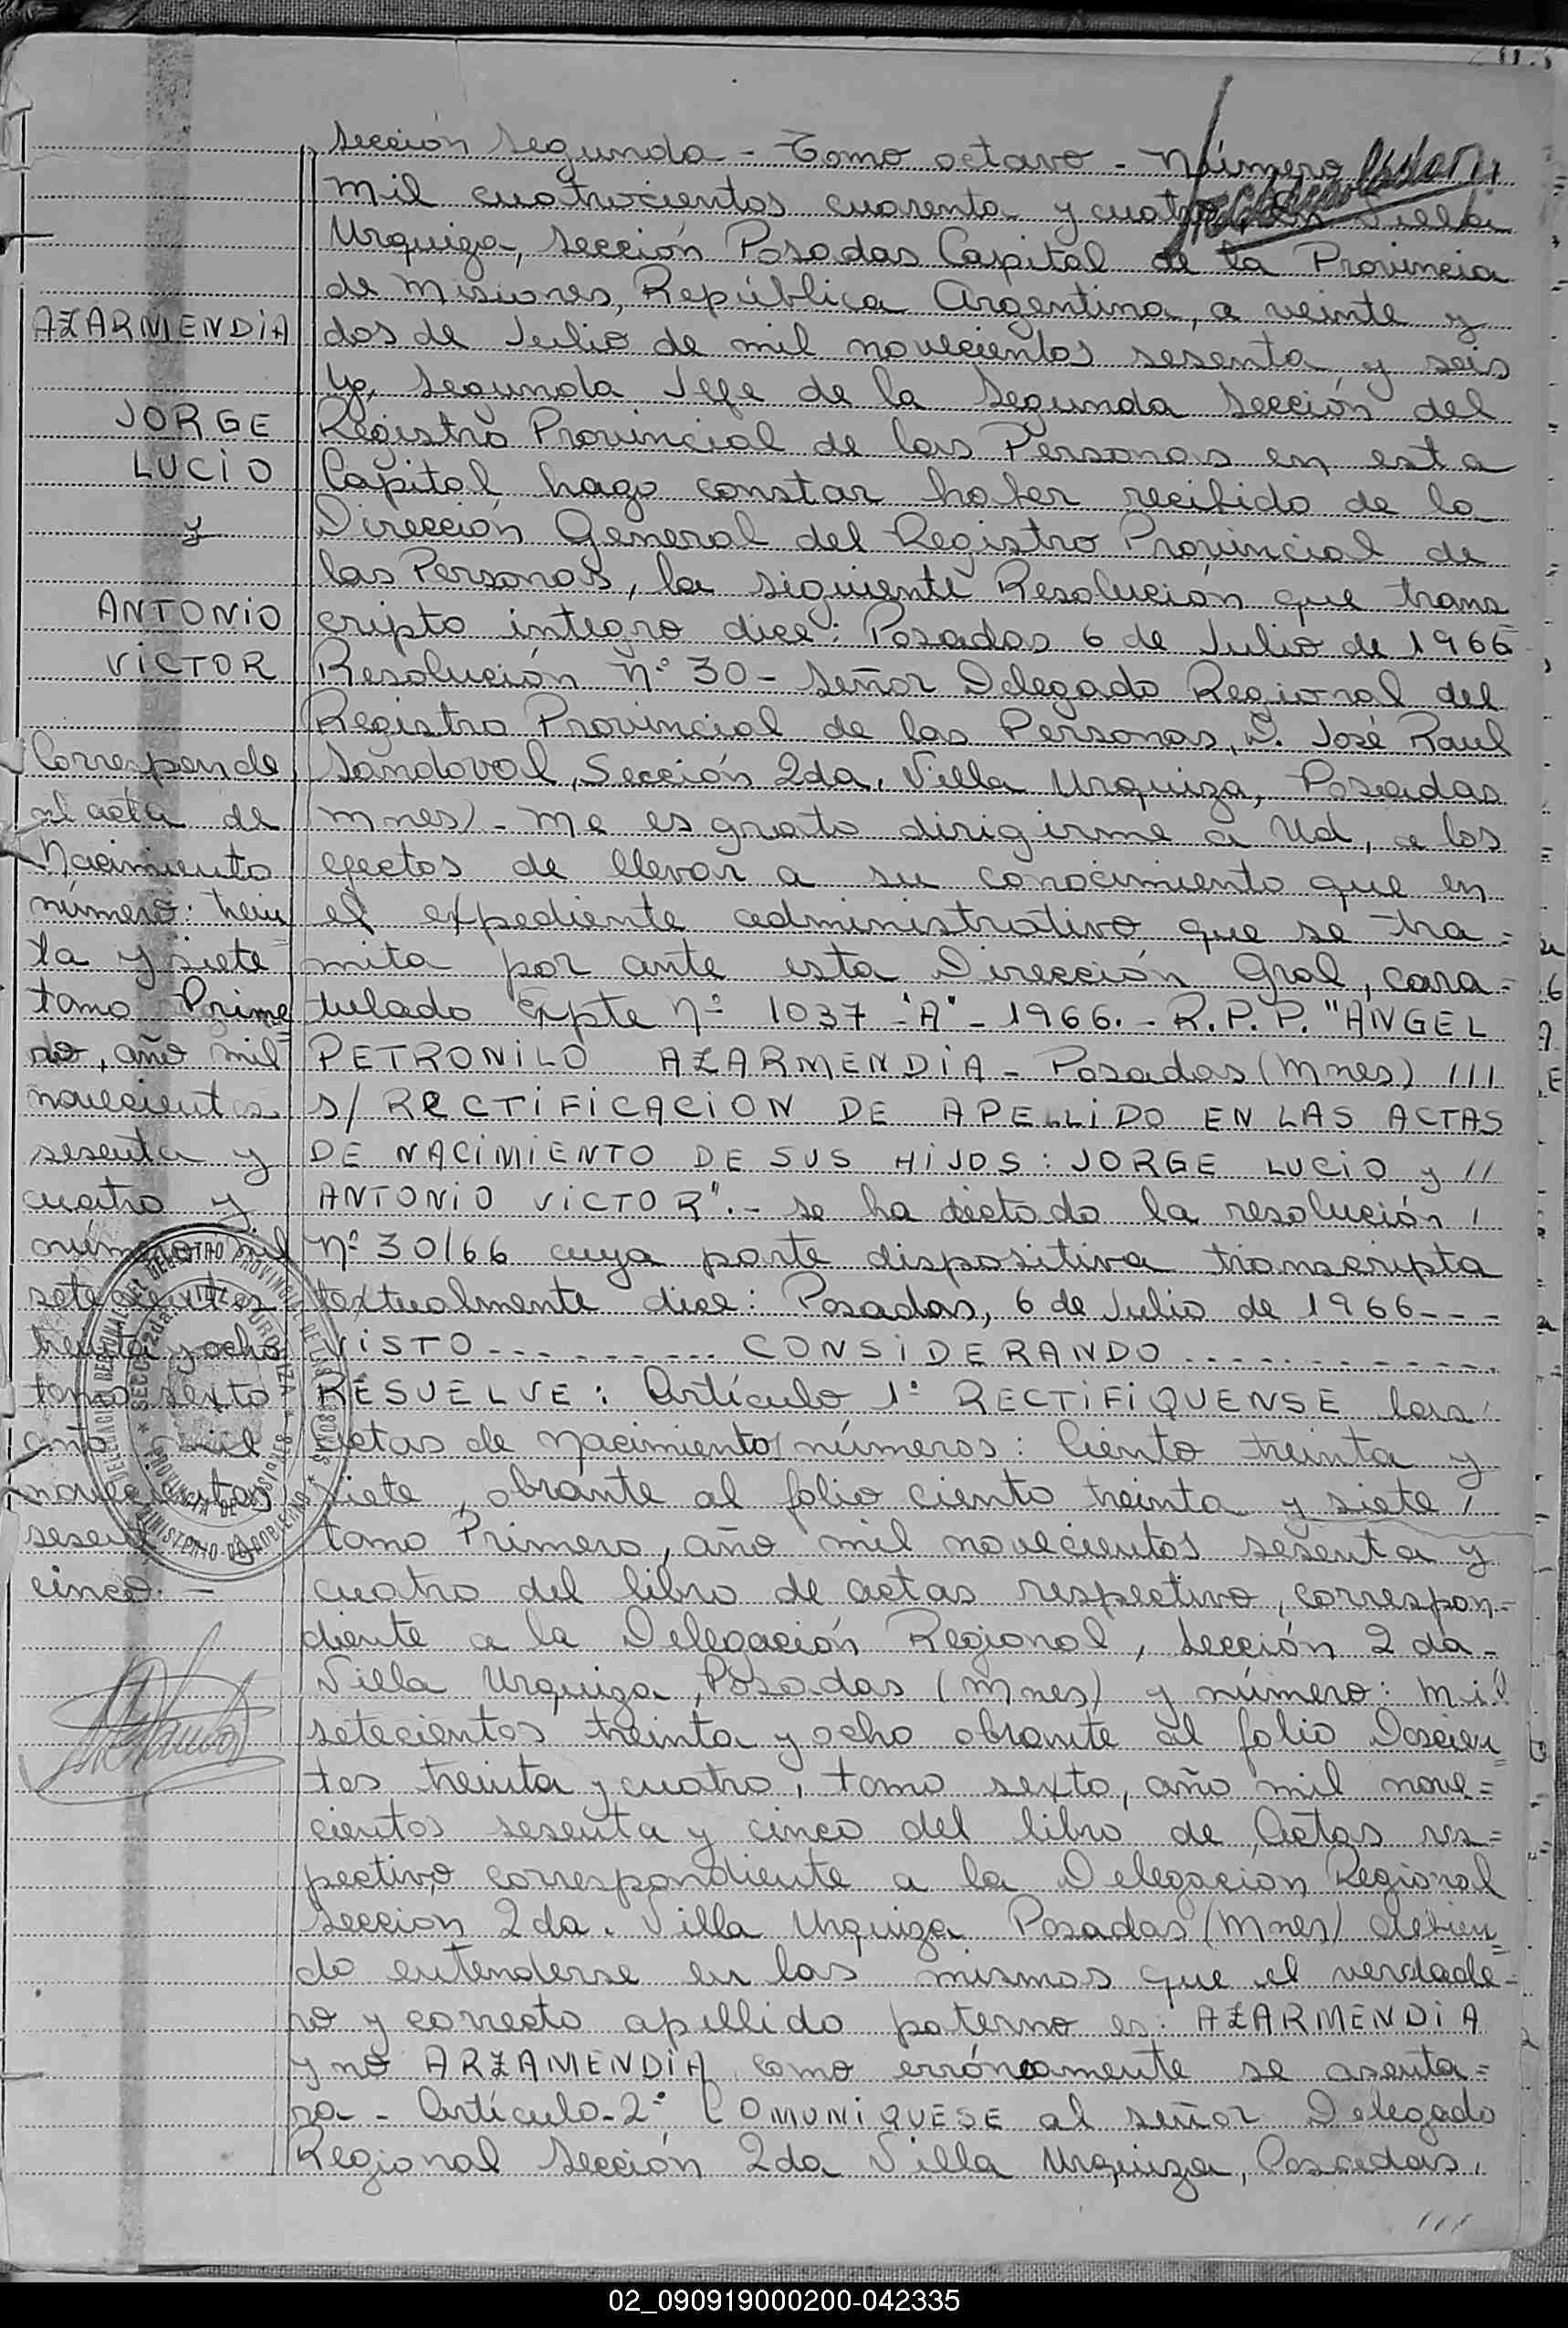 Sección Segunda - Tomo octavo - Número
mil cuatrocientos cuarenta y cuatro En Villa
Urquiza, Sección Posadas Capital de la Provincia
de Misiones, República Argentina, a veinte y
dos de Julio de mil novecientos sesenta y seis
Yo, Segunda Jefe de la Segunda Sección del
Registro Provincial de las Personas en esta
Capital hago constar haber recibido de la
Dirección General del Registro Provincial de
las Personas, la siguiente Resolución que trans
cripto integro dice: Posadas 6 de Julio de 1966
Resolución Nº 30 - Señor Delegado Regional del
Registro Provincial de las Personas, D. José Raul
Sandoval, Sección 2da, Villa Urquiza, Posadas
Mnes) - Me es grato dirigirme a Ud, a los
efectos de llevar a su conocimiento que en
el expediente administrativo que se tra=
mita por ante esta Dirección Gral, cara=
tulado Expte Nº 1037 -"A"- 1966.- R.P.P. "ANGEL
PETRONILO AZARMENDIA - Posadas (Mnes) ///
s/ RECTIFICACION DE APELLIDO EN LAS ACTAS
DE NACIMIENTO DE SUS HIJOS: JORGE LUCIO y //
ANTONIO VICTOR".- se ha dictado la resolución /
Nº 30/66 cuya parte dispositiva transcripta
textualmente dice: Posadas, 6 de Julio de 1966---
VISTO .......... CONSIDERANDO ............
RESUELVE: Artículo 1º RECTIFIQUENSE las
actas de Nacimiento números: Ciento treinta y
siete, obrante al folio ciento treinta y siete,
tomo Primero, año mil novecientos sesenta y
cuatro del libro de actas respectivo, correspon=
diente a la Delegación Regional, Sección 2da-
Villa Urquiza, Posadas (Mnes) y número: Mil
setecientos treinta y ocho obrante al folio Doscien
tos treinta y cuatro, tomo sexto, año mil nove=
cientos sesenta y cinco del libro de Actas res=
pectivo correspondiente a la Delegación Regional
Sección 2da. Villa Urquiza Posadas (Mnes) debien
do entenderse en las mismas que el verdade-
ro y correcto apellido paterno es: AZARMENDIA
y no ARZAMENDIA como erróneamente se asenta=
ra - Artículo-2º COMUNIQUESE al señor Delegado
Regional Sección 2da Villa Urquiza, Posadas,
///
AZARMENDIA
JORGE
LUCIO
y
ANTONIO
VICTOR
Corresponde
al acta de
Nacimiento
número: trein
ta y siete
tomo Prime
ro, año mil
novecientos
sesenta y
cuatro y
número mil
setecientos
treinta y ocho
tomo sexto
año mil
novecientos
sesenta
cinco.-
02_090919000200-042335